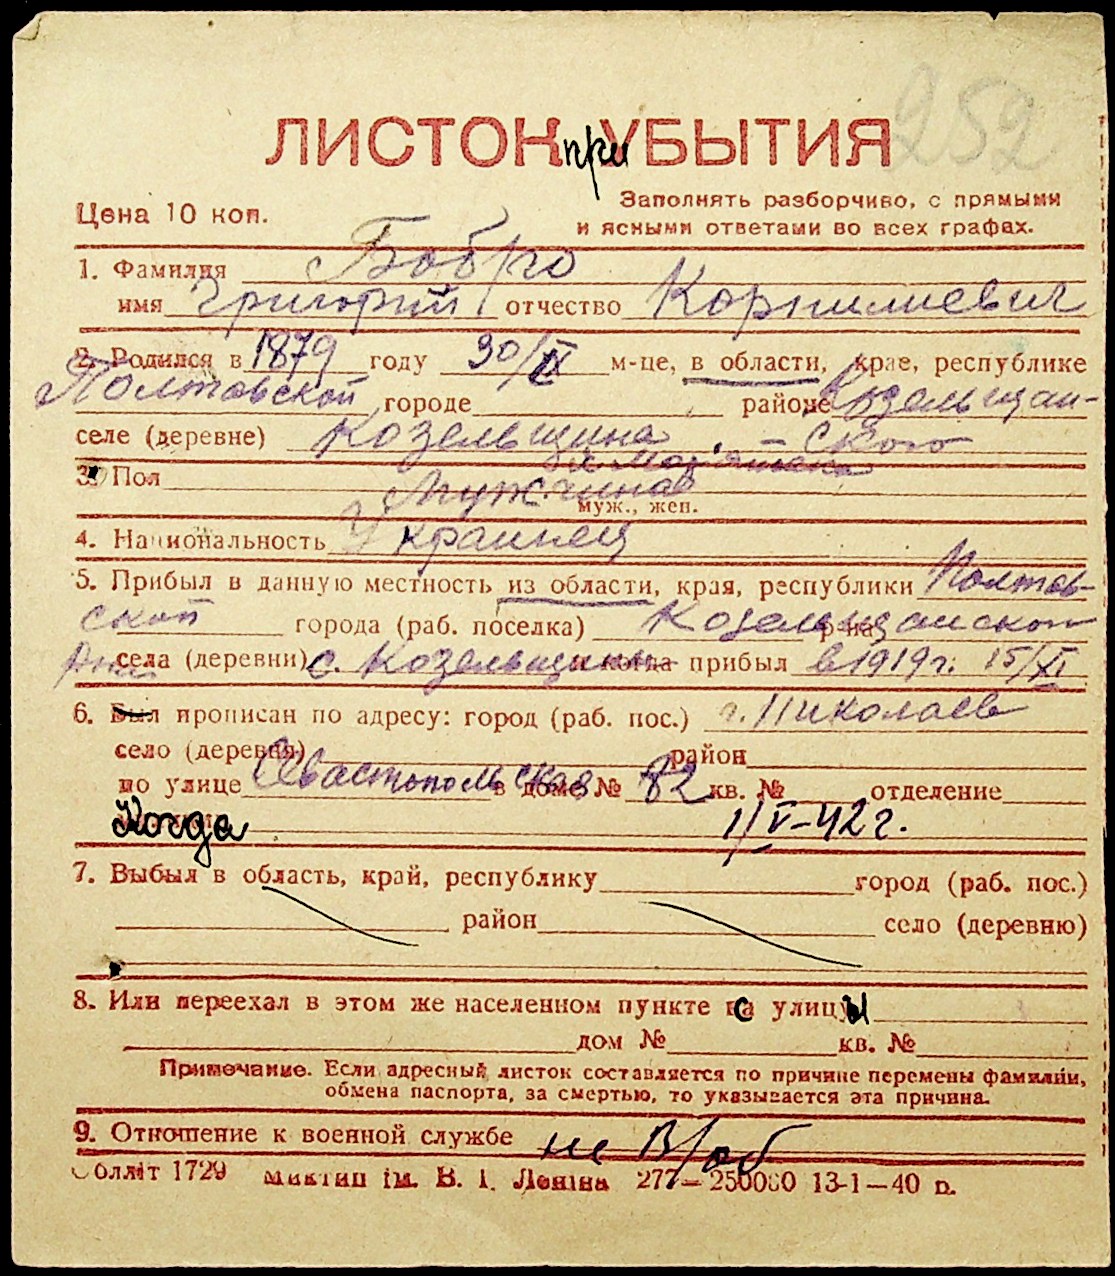 252
ЛИСТОК при УБЫТИЯ
Цена 10 коп.
Заполнять разборчиво, с прямыми
и ясными ответами во всех графах.
1. Фамилия Бобро
имя Григорий отчество Корнилиевич
2. Родился в 1879 году 30/IX м-це, в области, крае, республике
Полтавской городе районе Козельщан-
селе (деревне) Козельщина ского
3. Пол Мужчина
муж., жен.
4. Национальность Украинец
5. Прибыл в данную местность из области, края, республики Полтав-
ской города (раб. поселка) Козельщанского р-на
села (деревни) с. Козельщины и когда прибыл в 1919 г. 15/XI
6. Был прописан по адресу: город (раб. пос.) г. Николаев
село (деревня) район
по улице Севастопольская в доме № 82 кв. № отделение
Когда 1/V-42 г.
7. Выбыл в область, край, республику город (раб. пос.)
район село (деревню)
8. Или переехал в этом же населенном пункте с улицы
дом № кв. №
Примечание. Если адресный листок составляется по причине перемены фамилии,
обмена паспорта, за смертью, то указывается эта причина.
9. Отношение к военной службе не в/об
Облліт 1729 Миктип ім. В. І. Леніна 277—250000 13-1—40 р.